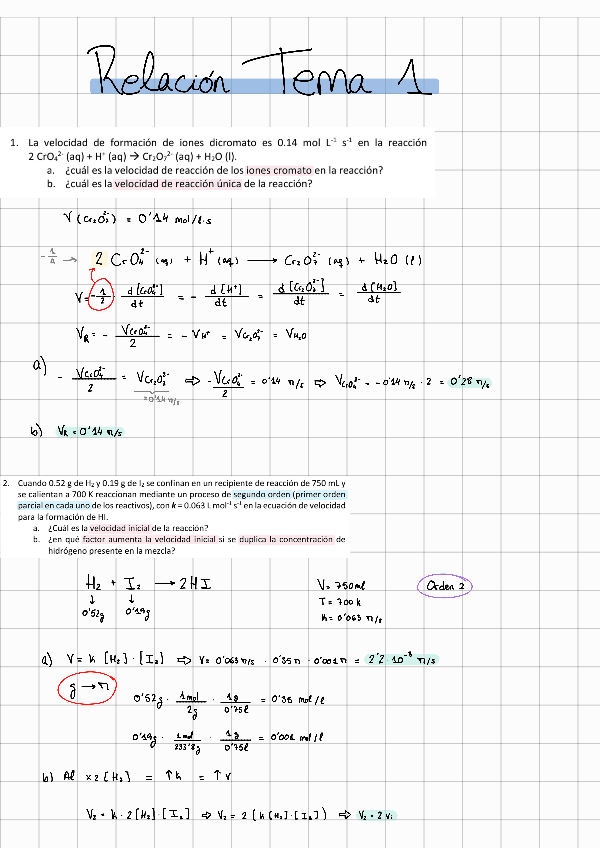 Relación Tema 1
1. La velocidad de formación de iones dicromato es 0.14 mol L⁻¹ s⁻¹ en la reacción
2 CrO₄²⁻ (aq) + H⁺ (aq) → Cr₂O₇²⁻ (aq) + H₂O (l).
a. ¿cuál es la velocidad de reacción de los iones cromato en la reacción?
b. ¿cuál es la velocidad de reacción única de la reacción?
V (Cr₂O₇²⁻) = 0'14 mol/l·s
2 CrO₄²⁻ (aq) + H⁺ (aq) → Cr₂O₇²⁻ (aq) + H₂O (l)
V = -1/2 d[CrO₄²⁻]/dt = - d[H⁺]/dt = d[Cr₂O₇²⁻]/dt = d[H₂O]/dt
V_R = - V CrO₄²⁻/2 = - V H⁺ = V Cr₂O₇²⁻ = V H₂O
a) - V CrO₄²⁻/2 = V Cr₂O₇²⁻ ⇒ - V CrO₄²⁻/2 = 0'14 M/s ⇒ V CrO₄²⁻ = -0'14 M/s · 2 = 0'28 M/s
=0'14 M/s
b) V_R = 0'14 M/s
2. Cuando 0.52 g de H₂ y 0.19 g de I₂ se confinan en un recipiente de reacción de 750 mL y
se calientan a 700 K reaccionan mediante un proceso de segundo orden (primer orden
parcial en cada uno de los reactivos), con k = 0.063 L mol⁻¹ s⁻¹ en la ecuación de velocidad
para la formación de HI.
a. ¿Cuál es la velocidad inicial de la reacción?
b. ¿en qué factor aumenta la velocidad inicial si se duplica la concentración de
hidrógeno presente en la mezcla?
H₂ + I₂ → 2HI
↓ ↓
0'52g 0'19g
V = 750ml
T = 700 k
k = 0'063 M/s
Orden 2
a) V = k [H₂] · [I₂] ⇒ V = 0'063 M/s · 0'35 M · 0'001 M = 2'2 · 10⁻⁵ M/s
g → M
0'52g · 1 mol/2g · 1/0'75l = 0'35 mol/l
0'19g · 1 mol/253'8g · 1/0'75l = 0'001 mol/l
b) Al x2 [H₂] = ↑k = ↑V
V₂ = k · 2[H₂] · [I₂] ⇒ V₂ = 2 (k [H₂] · [I₂]) ⇒ V₂ = 2 V₁